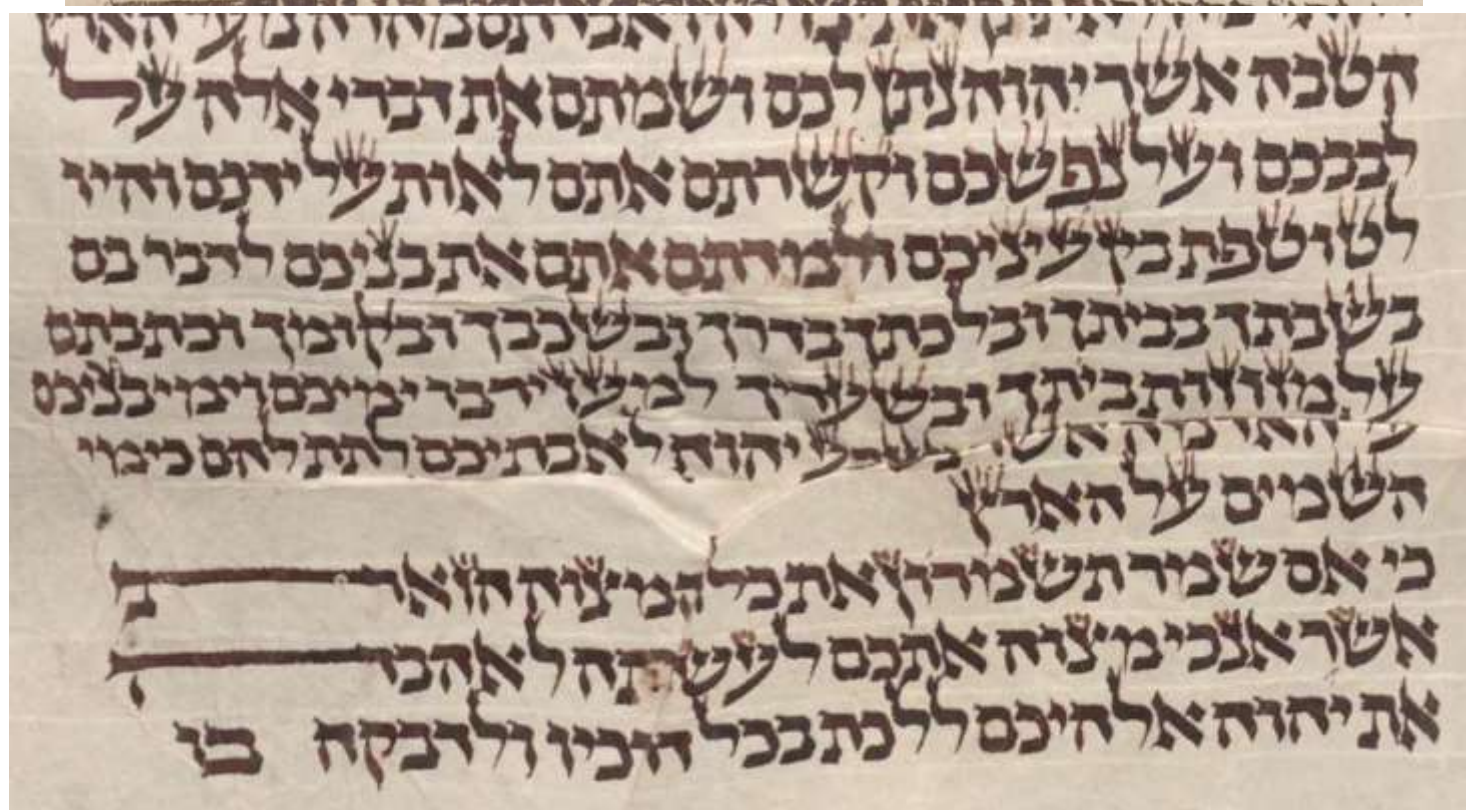 ואבדתם מהרה מעל הארץ
הטבה אשר יהוה נתן לכם ושמתם את דברי אלה על
לבבכם ועל נפשכם וקשרתם אתם לאות על ידכם והיו
לטוטפת בין עיניכם ולמדתם אתם את בניכם לדבר בם
בשבתך בביתך ובלכתך בדרך ובשכבך ובקומך וכתבתם
על מזוזות ביתך ובשעריך למען ירבו ימיכם וימי בניכם
על האדמה אשר נשבע יהוה לאבתיכם לתת להם כימי
השמים על הארץ
כי אם שמר תשמרון את כל המצוה הזאת
אשר אנכי מצוה אתכם לעשתה לאהבה
את יהוה אלהיכם ללכת בכל דרכיו ולדבקה בו